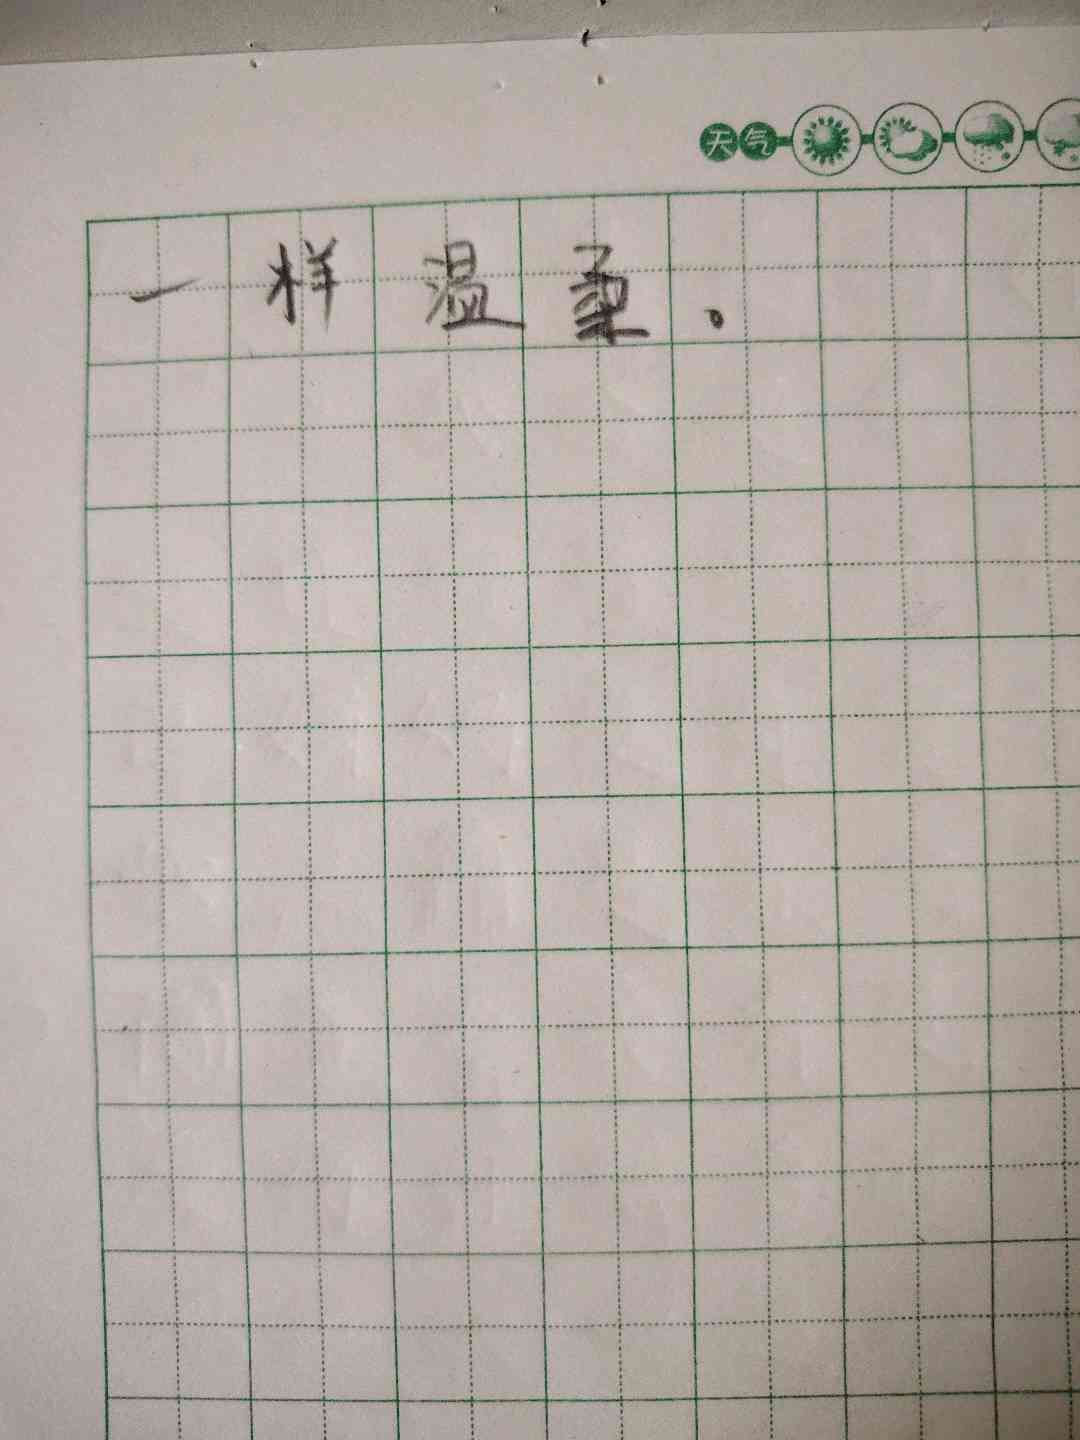 天气
一样温柔。